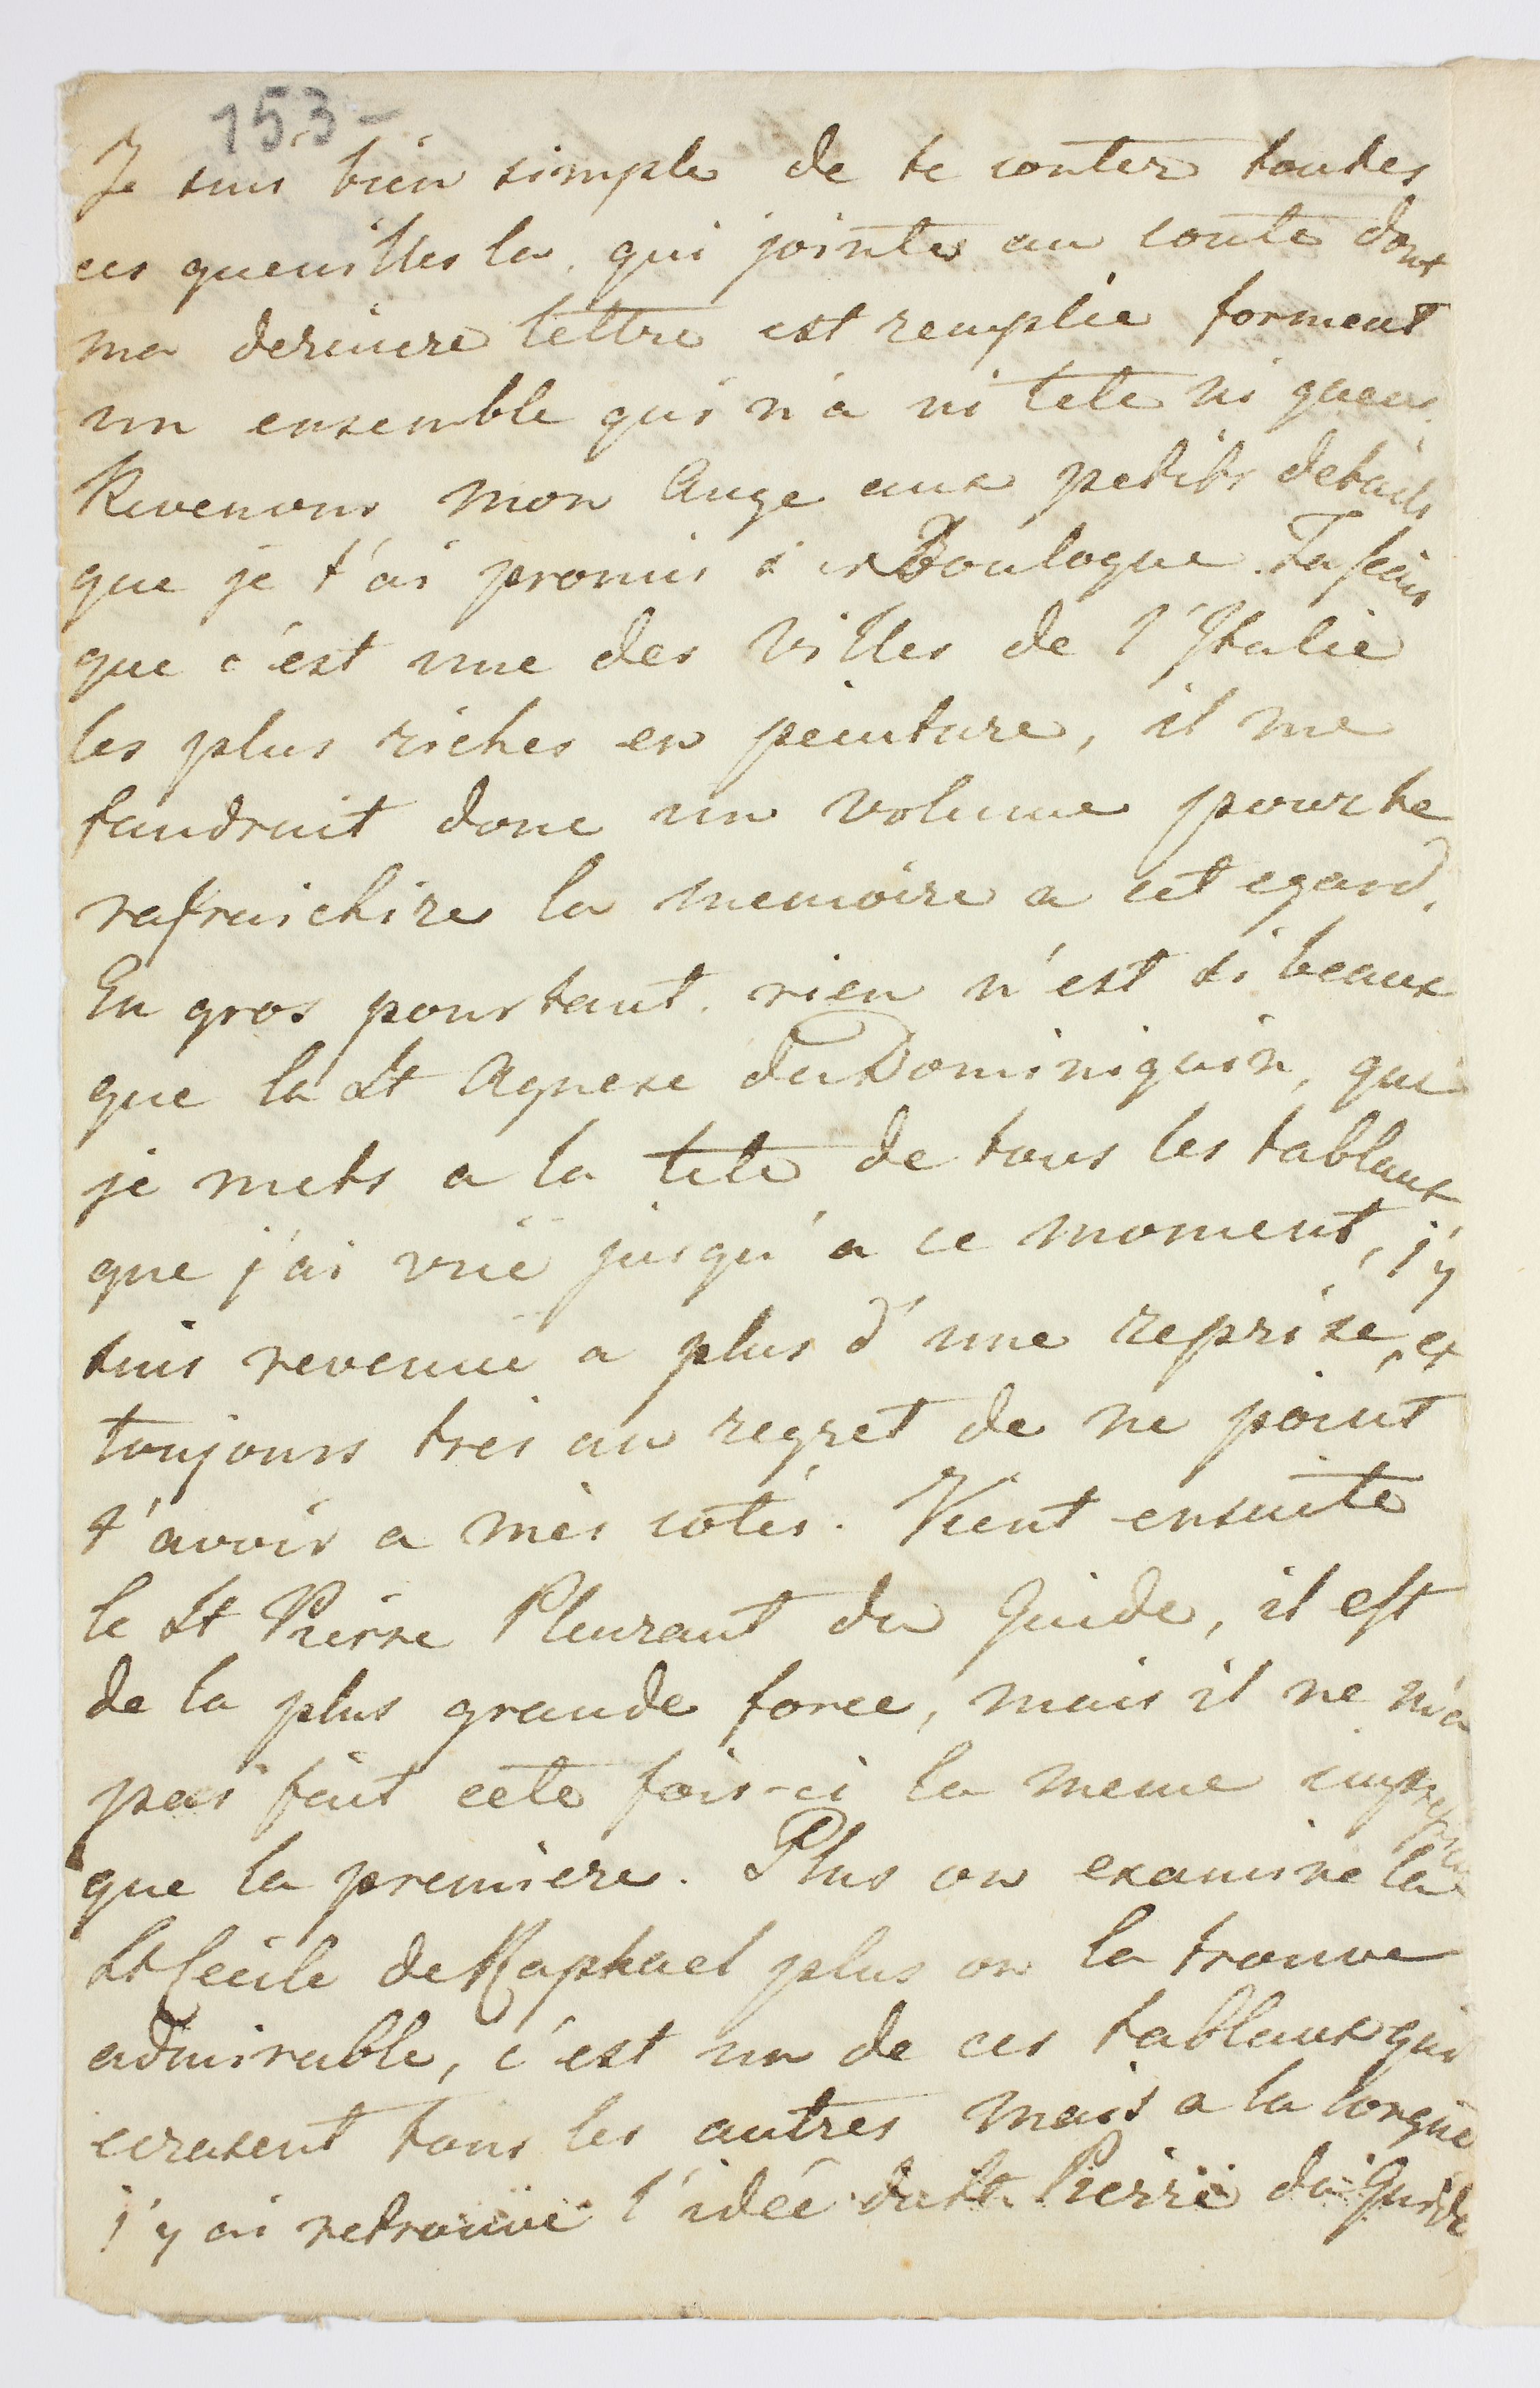 153-
Je suis bien simple de te conter toutes
ces queuilles la, qui jointes au conte dont
ma derniere lettre est remplie forment
un ensemble qui n'a ni tete ni queue.
Revenons mon Ange aux petits details
que je t'ai promis s Boulogne. Tu scais
que c'est une des Villes de l'Italie
les plus riches en peinture, il me
faudrait donc un volume pour te
rafraichire la memoire a cet egard.
En gros pourtant, rien n'est si beaux
que la St Agnese du Dominiquin, que
je mets a la tete de tous les tablaux
que j'ai vuë jusqu'a ce moment, j'y
suis revenuë a plus d'une reprise, et
toujours tres au regret de ne point
t'avoir a mes cotés. Vient ensuite
le St Pierre Pleurant du Guide, il est
de la plus grande force, mais il ne m'a
pas fait cete fois-ci la meme impression
que la premiere. Plus on examine la
St Cecile de Raphael plus on la trouve
admirable, c'est un de ces tablaux qui
ecrasent tous les autres mais a la longue
j'y ai retrouvé l'idée du St. Pierre du Guide